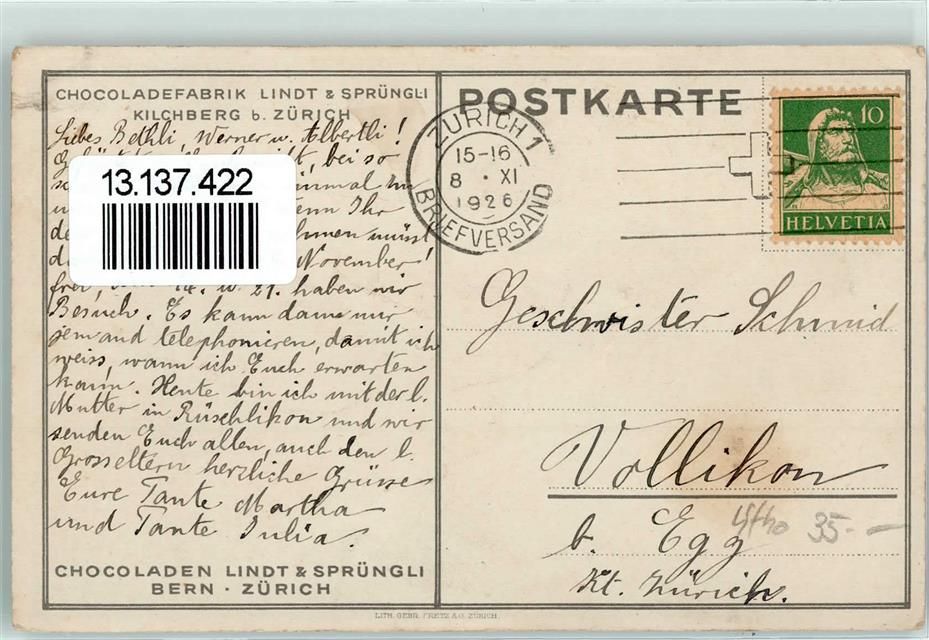 CHOCOLADEFABRIK LINDT & SPRÜNGLI
KILCHBERG b. ZÜRICH
Liebes Bethli, Werner u. Albertli!
bei so
13.137.422
Ihr
müsst
November!
frei, 14. u. 21. haben wir
Besuch. Es kann dann nur
jemand telephonieren, damit ich
weiss, wann ich Euch erwarten
kann. Heute bin ich mit der l.
Mutter in Rüschlikon und wir
senden Euch allen, auch den l.
Grosseltern herzliche Grüsse
Eure Tante Martha
und Tante Julia.
CHOCOLADEN LINDT & SPRÜNGLI
BERN · ZÜRICH
LITH. GEBR. FRETZ A.G. ZÜRICH.
POSTKARTE
ZÜRICH 1
15-16
8 · XI
1926
BRIEFVERSAND
10
HELVETIA
Geschwister Schmid
Vollikon
b. Egg
Kt. Zürich.
Litho 35.-